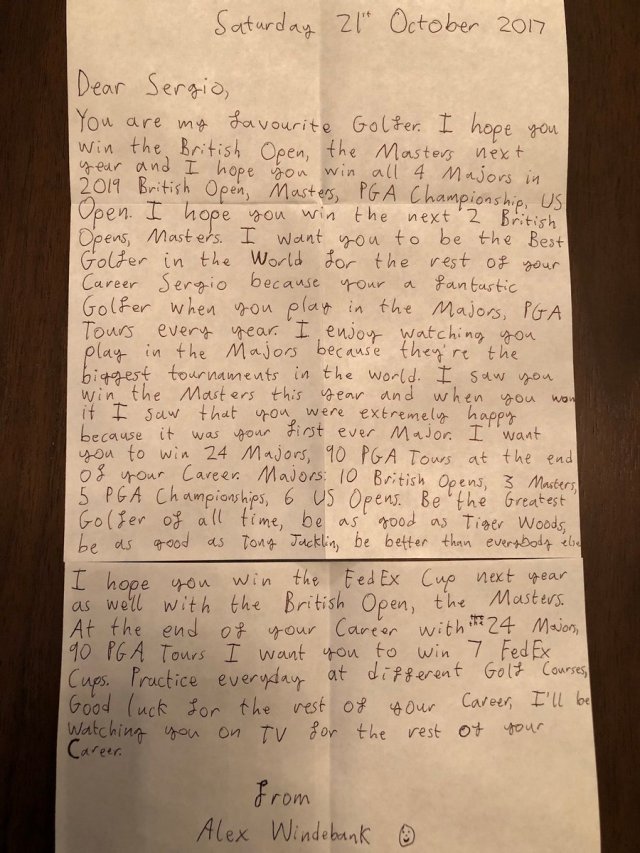 Saturday 21st October 2017
Dear Sergio,
You are my favourite Golfer. I hope you
win the British Open, the Masters next
year and I hope you win all 4 Majors in
2019 British Open, Masters, PGA Championship, US
Open. I hope you win the next 2 British
Opens, Masters. I want you to be the Best
Golfer in the World for the rest of your
Career Sergio because your a fantastic
Golfer when you play in the Majors, PGA
Tours every year. I enjoy watching you
play in the Majors because they're the
biggest tournaments in the world. I saw you
win the Masters this year and when you won
it I saw that you were extremely happy
because it was your first ever Major. I want
you to win 24 Majors, 90 PGA Tours at the end
of your Career. Majors: 10 British Opens, 3 Masters,
5 PGA Championships, 6 US Opens. Be the Greatest
Golfer of all time, be as good as Tiger Woods,
be as good as Tony Jacklin, be better than everybody else
I hope you win the FedEx Cup next year
as well with the British Open, the Masters.
At the end of your Career with the 24 Majors,
90 PGA Tours I want you to win 7 FedEx
Cups. Practice everyday at different Golf Courses,
Good luck for the rest of your Career, I'll be
watching you on TV for the rest of your
Career.
from
Alex Windebank